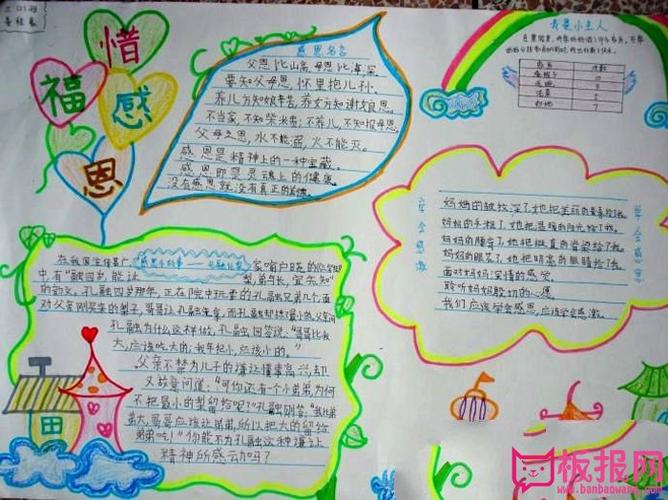 三(2)班
惜
福
感
恩
感恩名言
父恩比山高,母恩比海深。
要知父母恩,怀里抱儿孙。
养儿方知娘辛苦,养女方知谢娘恩。
不当家,不知柴米贵;不养儿,不知报母恩。
父母之恩,水不能溺,火不能灭。
感恩是精神上的一种宝藏。
感恩即是灵魂上的健康。
没有感恩就没有真正的美德。
我是小主人
次数
扫地
学会感激
学会感恩
妈妈的皱纹深了,她把美丽的青春给了我。
妈妈的手粗了,她把温暖的阳光给了我。
妈妈的腰弯了,她把挺直的脊梁给了我。
妈妈的眼花了,她把明亮的眼睛给了我。
面对妈妈深情的感受
聆听妈妈殷切的心愿
我们应该学会感恩,应该学会感激。
在我国流传甚广、
家喻户晓的《三字经》
中有“融四岁,能让
梨,弟与长,宜先知”
的韵文。孔融四岁那年,正在院中玩耍的孔融兄弟几个,面
对父亲刚买来的梨子,哥哥让孔融先拿,而孔融却挑最小的。父亲问
孔融为什么这样做,孔融回答说:“哥哥比我
大,应该吃大的;我年纪小,应该小的。”
父亲不禁为儿子的谦让懂事高兴,却
又故意问道:“可你还有一个小弟弟,为何
不把最小的梨留给呢?”孔融则答:“我比弟
弟大,哥哥应该让弟弟,所以把大的留给
弟弟吃!”你能不为孔融这种谦让
精神所感动吗?
板报网
www.banbaowang.com